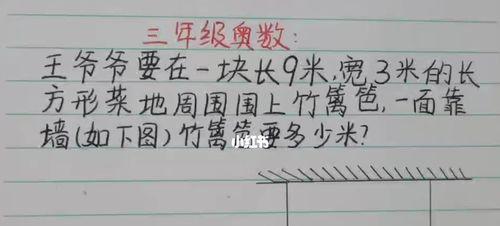 三年级奥数:
王爷爷要在一块长9米,宽3米的长
方形菜地周围围上竹篱笆,一面靠
墙(如下图)竹篱笆要多少米?
小红书